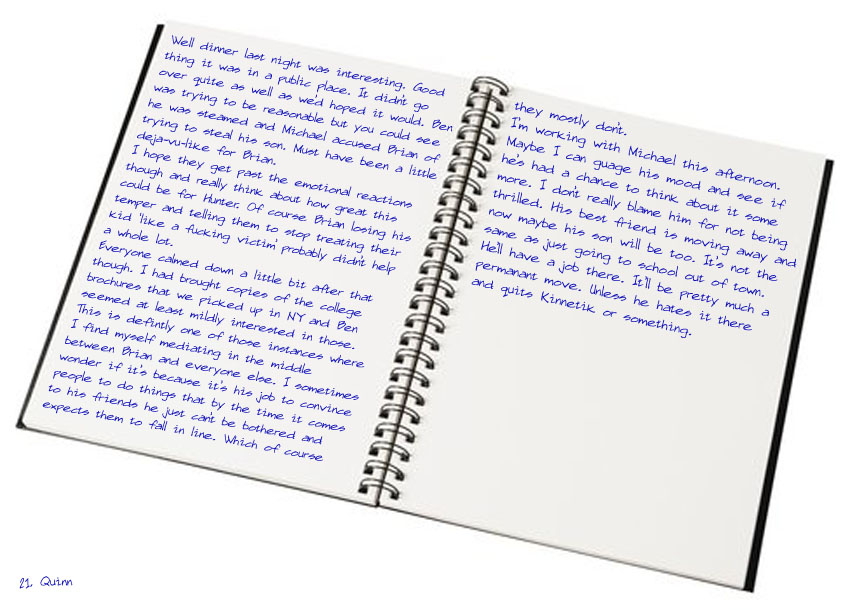 Well dinner last night was interesting. Good
thing it was in a public place. It didn't go
over quite as well as we'd hoped it would. Ben
was trying to be reasonable but you could see
he was steamed and Michael accused Brian of
trying to steal his son. Must have been a little
deja-vu-like for Brian.
I hope they get past the emotional reactions
though and really think about how great this
could be for Hunter. Of course Brian losing his
temper and telling them to stop treating their
kid 'like a fucking victim' probably didn't help
a whole lot.
Everyone calmed down a little bit after that
though. I had brought copies of the college
brochures that we picked up in NY and Ben
seemed at least mildly interested in those.
This is defintly one of those instances where
I find myself mediating in the middle
between Brian and everyone else. I sometimes
wonder if it's because it's his job to convince
people to do things that by the time it comes
to his friends he just can't be bothered and
expects them to fall in line. Which of course
they mostly don't.
I'm working with Michael this afternoon.
Maybe I can guage his mood and see if
he's had a chance to think about it some
more. I don't really blame him for not being
thrilled. His best friend is moving away and
now maybe his son will be too. It's not the
same as just going to school out of town.
He'll have a job there. It'll be pretty much a
permanant move. Unless he hates it there
and quits Kinnetik or something.
21. Quinn